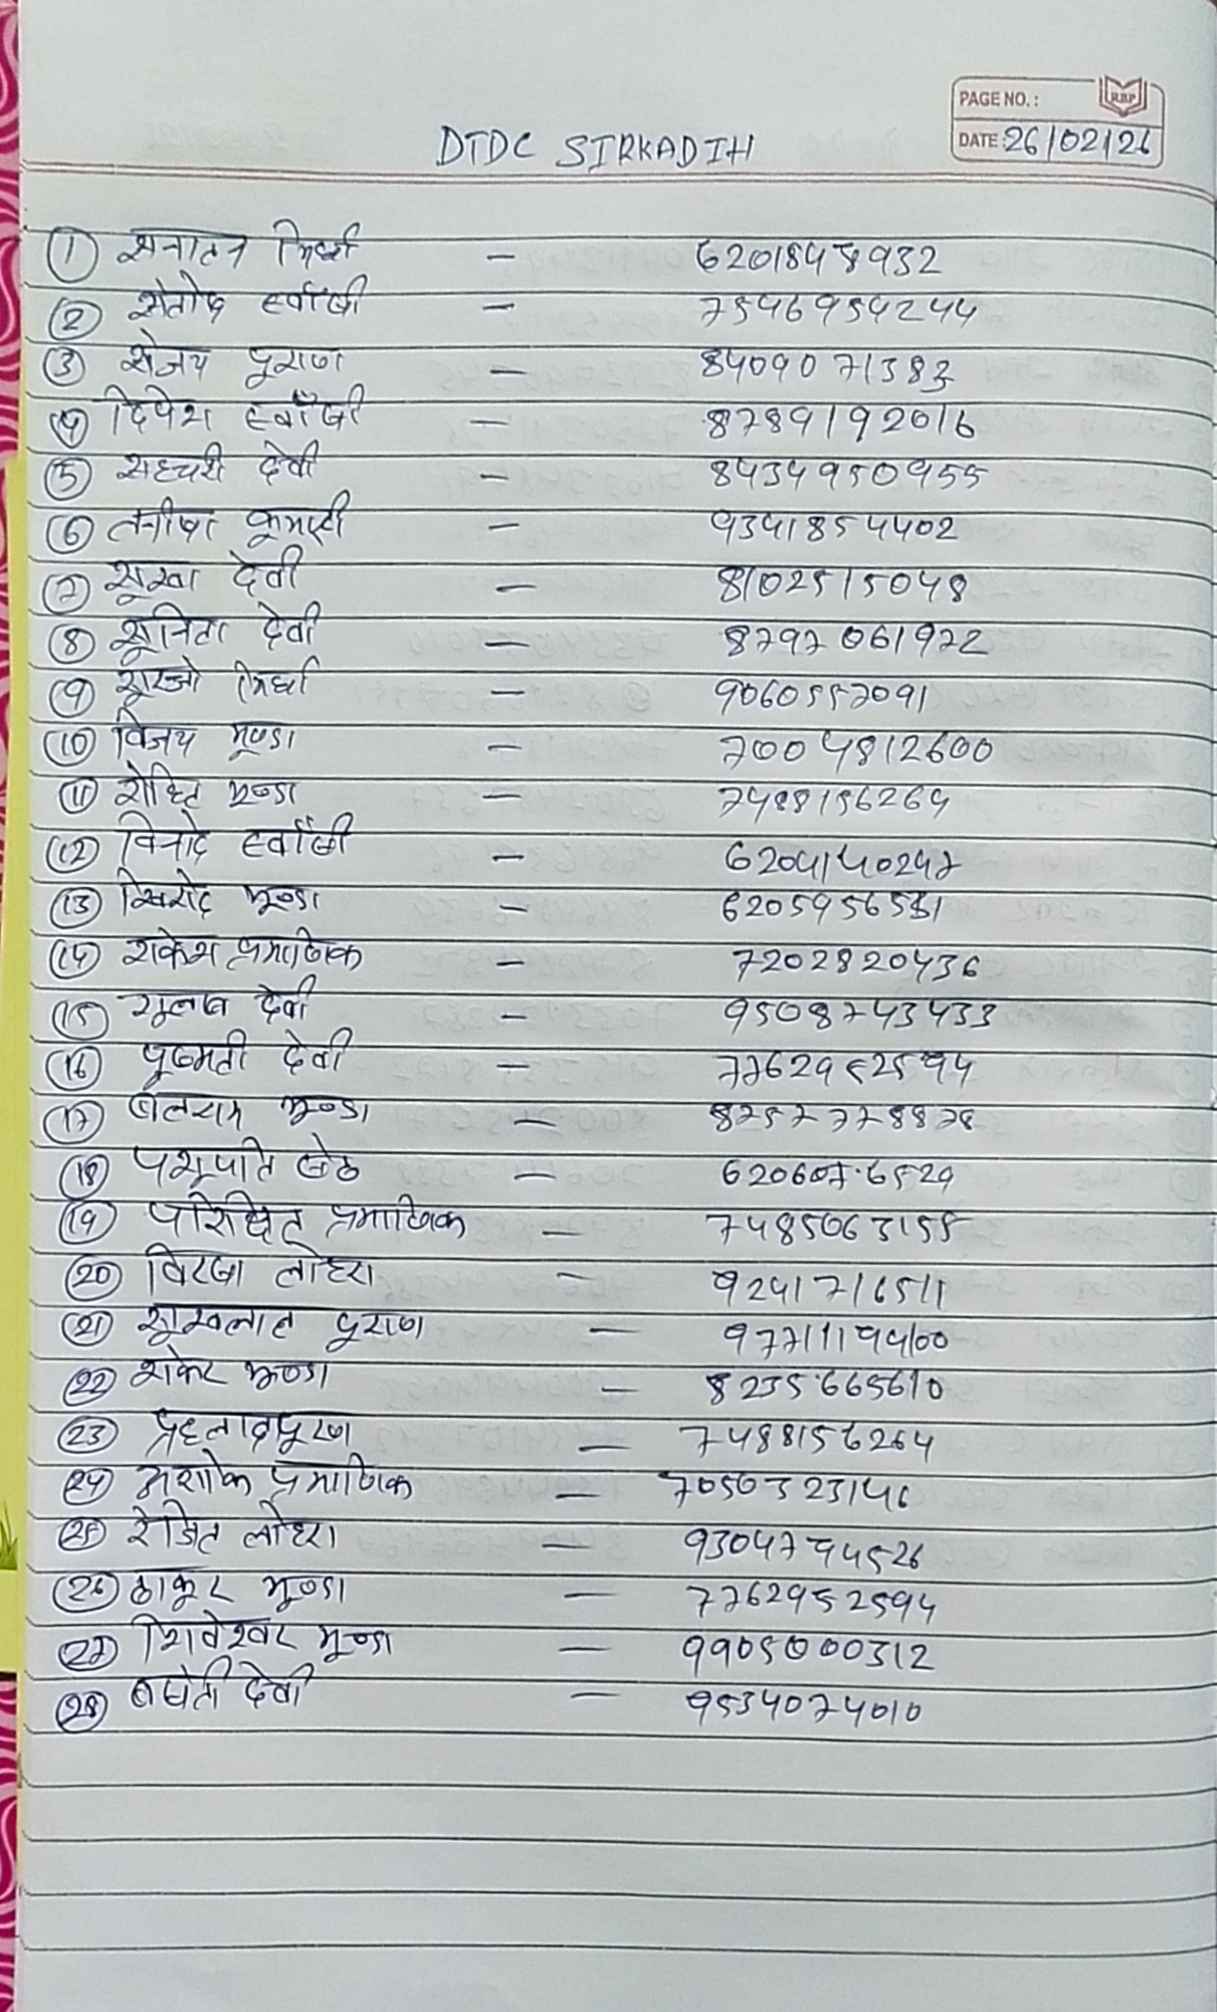 PAGE NO. :
RBP
DATE : 26/02/26
DTDC SIRKADIH
① सनातन मिर्धा - 6201848932
② संतोष हर्वांषी - 7546954244
③ संजय पुराण - 8409071383
④ दिपेश हर्वांषी - 8789192016
⑤ सहचरी देवी - 8434950955
⑥ तनीषा कुमारी - 9341854402
⑦ सुखा देवी - 8102515048
⑧ सुनिता देवी - 8797061972
⑨ सुरजो मिर्धा - 9060557091
⑩ विजय मुण्डा - 7004812600
⑪ रोहित मुण्डा - 7488156264
⑫ विनोद हर्वांषी - 6204140247
⑬ खिरोद मुण्डा - 6205956531
⑭ राकेश प्रमाणिक - 7202820436
⑮ गुलाब देवी - 9508743433
⑯ पुष्मती देवी - 7762952594
⑰ बलराम मुण्डा - 8257778878
⑱ पशुपति सेठ - 6206076529
⑲ परिक्षित प्रमाणिक - 7485063155
⑳ विरसा लोहरा - 9241716511
㉑ सुखलाल पुराण - 9771119400
㉒ शंकर मुण्डा - 8235665610
㉓ प्रहलाद पुराण - 7488156264
㉔ अशोक प्रमाणिक - 7050323146
㉕ रंजित लोहरा - 9304794526
㉖ ठाकुर मुण्डा - 7762952594
㉗ शिवेश्वर मुण्डा - 9905000312
㉘ बसंती देवी - 9534074010